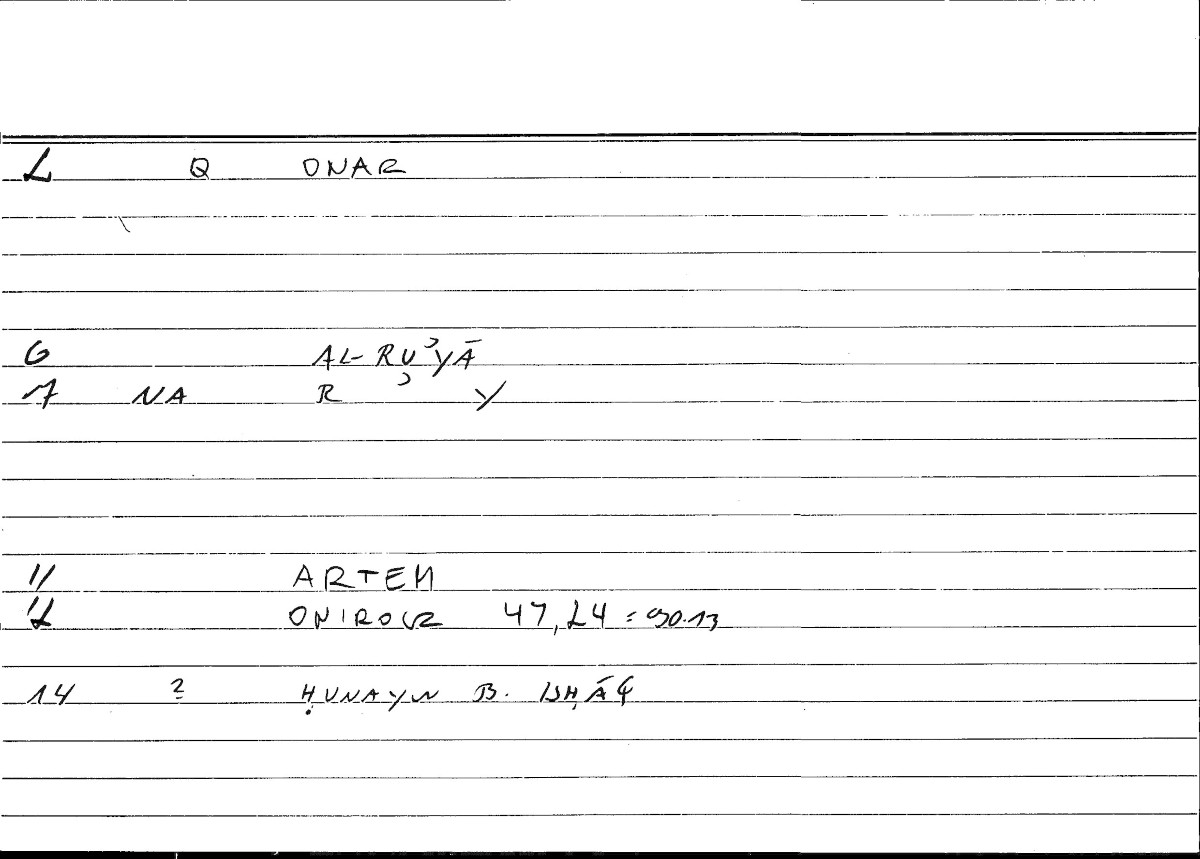 2 Q ONAR
6 AL-RUʾYĀ
7 NA R ʾ Y
11 ARTEM
12 ONIROCR 47,24 = 90.13
14 2 ḤUNAYN B. ISḤĀQ